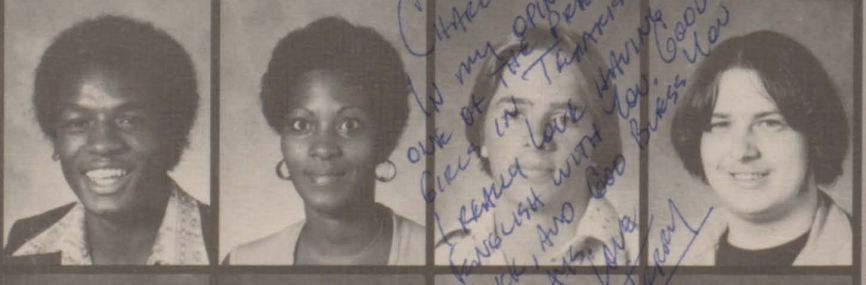 IN MY OPIN
ONE OF THE
GIRLS IN
I REALLY LOVE HAVING
ENGLISH WITH YOU. GOOD
AND GOD BLESS YOU
LOVE
TERRY